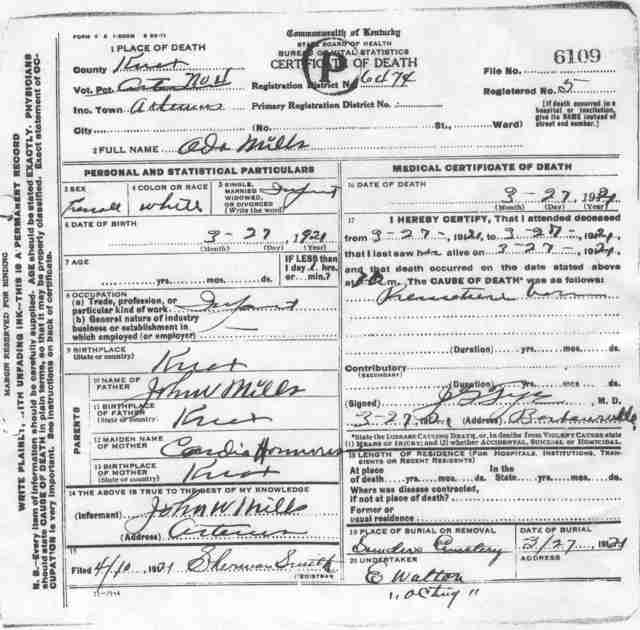 Commonwealth of Kentucky
STATE BOARD OF HEALTH
BUREAU OF VITAL STATISTICS
CERTIFICATE OF DEATH
1 PLACE OF DEATH
County Knox
Vot. Pct. Artemus No 4
Registration District No. 6474
Inc. Town Artemus
Primary Registration District No.
City (No. St., Ward)
File No. 6109
Registered No. 5
[If death occurred in a hospital or institution, give its NAME instead of street and number.]
2 FULL NAME Oda Mills
PERSONAL AND STATISTICAL PARTICULARS
3 SEX Female
4 COLOR OR RACE White
5 SINGLE, MARRIED, WIDOWED, OR DIVORCED (Write the word) Infant
6 DATE OF BIRTH
3 - 27, 1921
(Month) (Day) (Year)
7 AGE
yrs. mos. ds.
IF LESS than 1 day, hrs. or min.?
8 OCCUPATION
(a) Trade, profession, or particular kind of work Infant
(b) General nature of industry business or establishment in which employed (or employer)
9 BIRTHPLACE
(State or country) Knox
PARENTS
10 NAME OF FATHER John W Mills
11 BIRTHPLACE OF FATHER (State or country) Knox
12 MAIDEN NAME OF MOTHER
13 BIRTHPLACE OF MOTHER (State or country) Knox
14 THE ABOVE IS TRUE TO THE BEST OF MY KNOWLEDGE
(Informant) John W Mills
(Address) Artemus
15
Filed 4/10, 1921 Sherman Smith
REGISTRAR
MEDICAL CERTIFICATE OF DEATH
16 DATE OF DEATH
3 - 27, 1921
(Month) (Day) (Year)
17 I HEREBY CERTIFY, That I attended deceased
from 3-27-, 1921, to 3-27-, 1921,
that I last saw her alive on 3-27-, 1921,
and that death occurred on the date stated above
at m. The CAUSE OF DEATH* was as follows:
Premature
(Duration) yrs. mos. ds.
Contributory
(SECONDARY)
(Duration) yrs. mos. ds.
(Signed) M. D.
3-27, 1921 (Address) Barbourville
*State the DISEASE CAUSING DEATH, or, in deaths from VIOLENT CAUSES state (1) MEANS OF INJURY; and (2) whether ACCIDENTAL, SUICIDAL OR HOMICIDAL.
18 LENGTH OF RESIDENCE (FOR HOSPITALS, INSTITUTIONS, TRANSIENTS OR RECENT RESIDENTS)
At place of death yrs. mos. ds. In the State yrs. mos. ds.
Where was disease contracted, if not at place of death?
Former or usual residence
19 PLACE OF BURIAL OR REMOVAL
Cemetery
DATE OF BURIAL
3/27, 1921
20 UNDERTAKER
E Walton
ADDRESS
MARGIN RESERVED FOR BINDING
WRITE PLAINLY, WITH UNFADING INK—THIS IS A PERMANENT RECORD
N. B.—Every item of information should be carefully supplied. AGE should be stated EXACTLY. PHYSICIANS
should state CAUSE OF DEATH in plain terms, so that it may be properly classified. Exact statement of OC-
CUPATION is very important. See instructions on back of certificate.